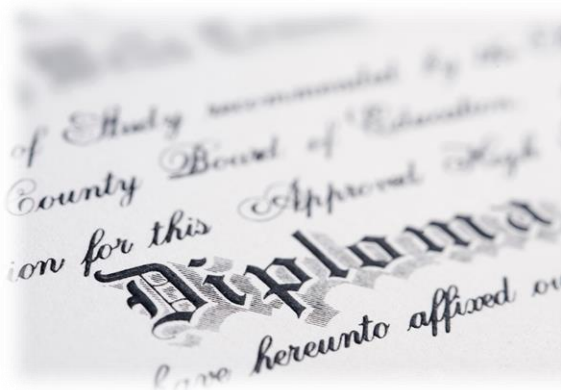 of Study recommended by the
County Board of Education
ion for this Approved High
Diploma
have hereunto affixed ou